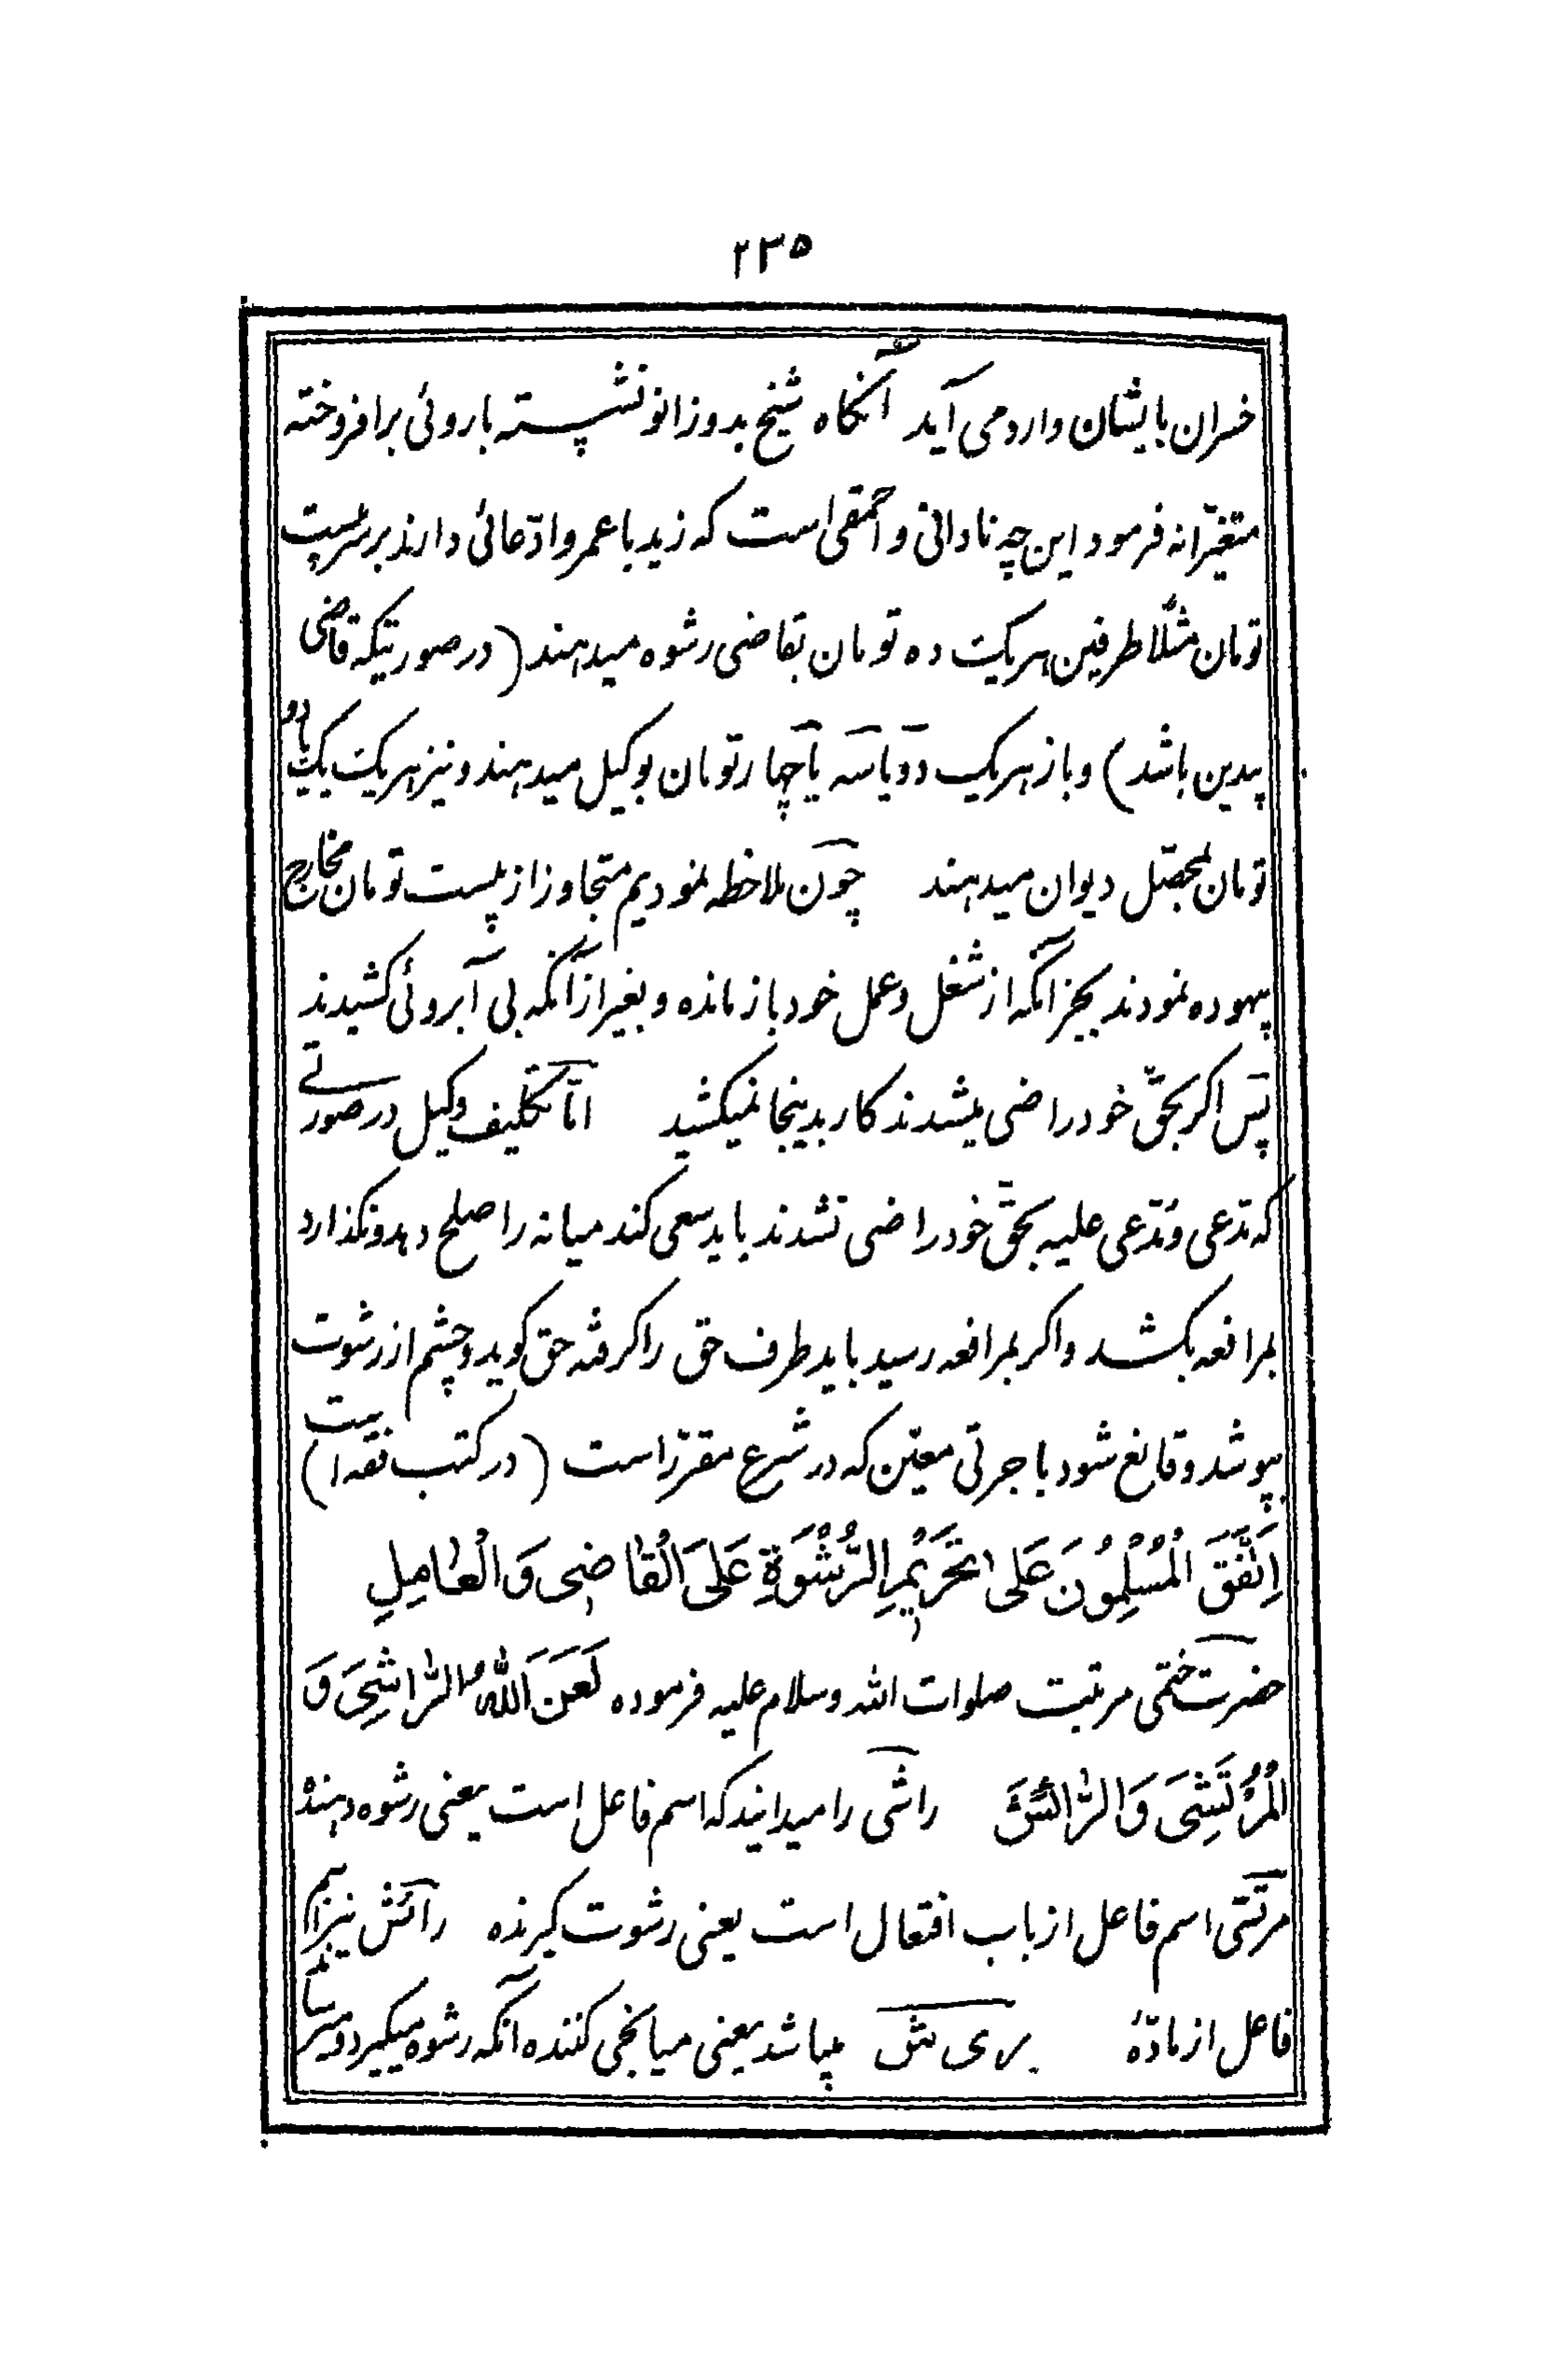 ۲۳۵
خسران بایشان وارد می آید آنگاه شیخ بدوزانو نشسته باروئی برافروخته
متغیّرانه فرمود این چه نادانی و احمقی است که زید با عمرو ادّعائی دارند بر سر بیست
تومان مثلاً طرفین هریک ده تومان بقاضی رشوه میدهند (در صورتیکه قاضی
بیدین باشد) و باز هریک دو یا سه یا چهار تومان بوکیل میدهند و نیز هریک یک یا دو
تومان بمحصّل دیوان میدهند چون ملاحظه نمودیم متجاوز از بیست تومان مخارج
بیهوده نمودند بجز آنکه از شغل و عمل خود بازمانده و بغیر از آنکه بی آبروئی کشیدند
پس اگر بحقّ خود راضی میشدند کار بدینجا نمیکشید امّا تکلیف وکیل در صورتے
که مدّعی و مدّعی علیه بحقّ خود راضی نشدند باید سعی کند میانه را صلح دهد و نگذارد
بمرافعه بکشد و اگر بمرافعه رسید باید طرف حق را گرفته حق گوید و چشم از رشوت
بپوشد و قانع شود باجرتی معیّن که در شرع مقرّر است (در کتب فقه است)
اِتَّفَقَ الْمُسْلِمُونَ عَلی تَحْرَیْمِ الرُّشْوَةِ عَلَی الْقاضِی وَ الْعامِلِ
حضرت ختمی مرتبت صلوات الله وسلام علیه فرموده لَعَنَ اَللهُ الرّاشِیَ وَ
الْمُرْتَشِیَ وَ الرّائشَ راشی را میدانید که اسم فاعل است یعنی رشوه دهنده
مرتشی اسم فاعل از باب افتعال است یعنی رشوت گیرنده رائش نیز اسم
فاعل از مادّهٔ ری ش میباشد یعنی میانجی کننده آنکه رشوه میگیرد و میرساند